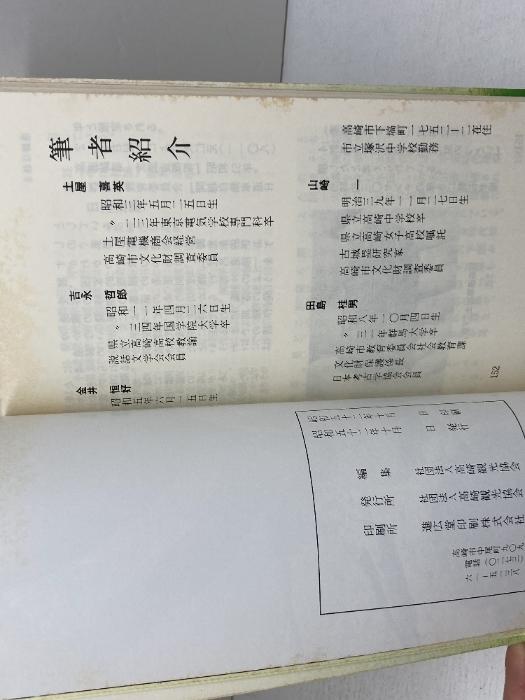 筆者紹介
土屋 喜英
昭和三年五月二五日生
〃 二三年東京電気学校専門科卒
土屋電機商会経営
高崎市文化財調査委員
吉永 哲郎
昭和一一年四月二六日生
〃 三四年国学院大学卒
県立高崎高校教諭
説話文学会会員
金井 恒好
昭和五年六月一五日生
高崎市下塙町一七五三ー二在住
市立塚沢中学校勤務
山崎 一
明治三九年一二月一七日生
県立高崎中学校卒
県立高崎女子高校嘱託
古城塁研究家
高崎市文化財調査委員
田島 桂男
昭和八年一〇月四日生
〃 三一年群馬大学卒
高崎市教育委員会社会教育課
文化財保護係長
日本考古学協会会員
152
昭和五十二年十月 日 発行
編集 社団法人高崎観光協会
発行所 社団法人高崎観光協会
印刷所 進広堂印刷株式会社
高崎市中尾町九〇九